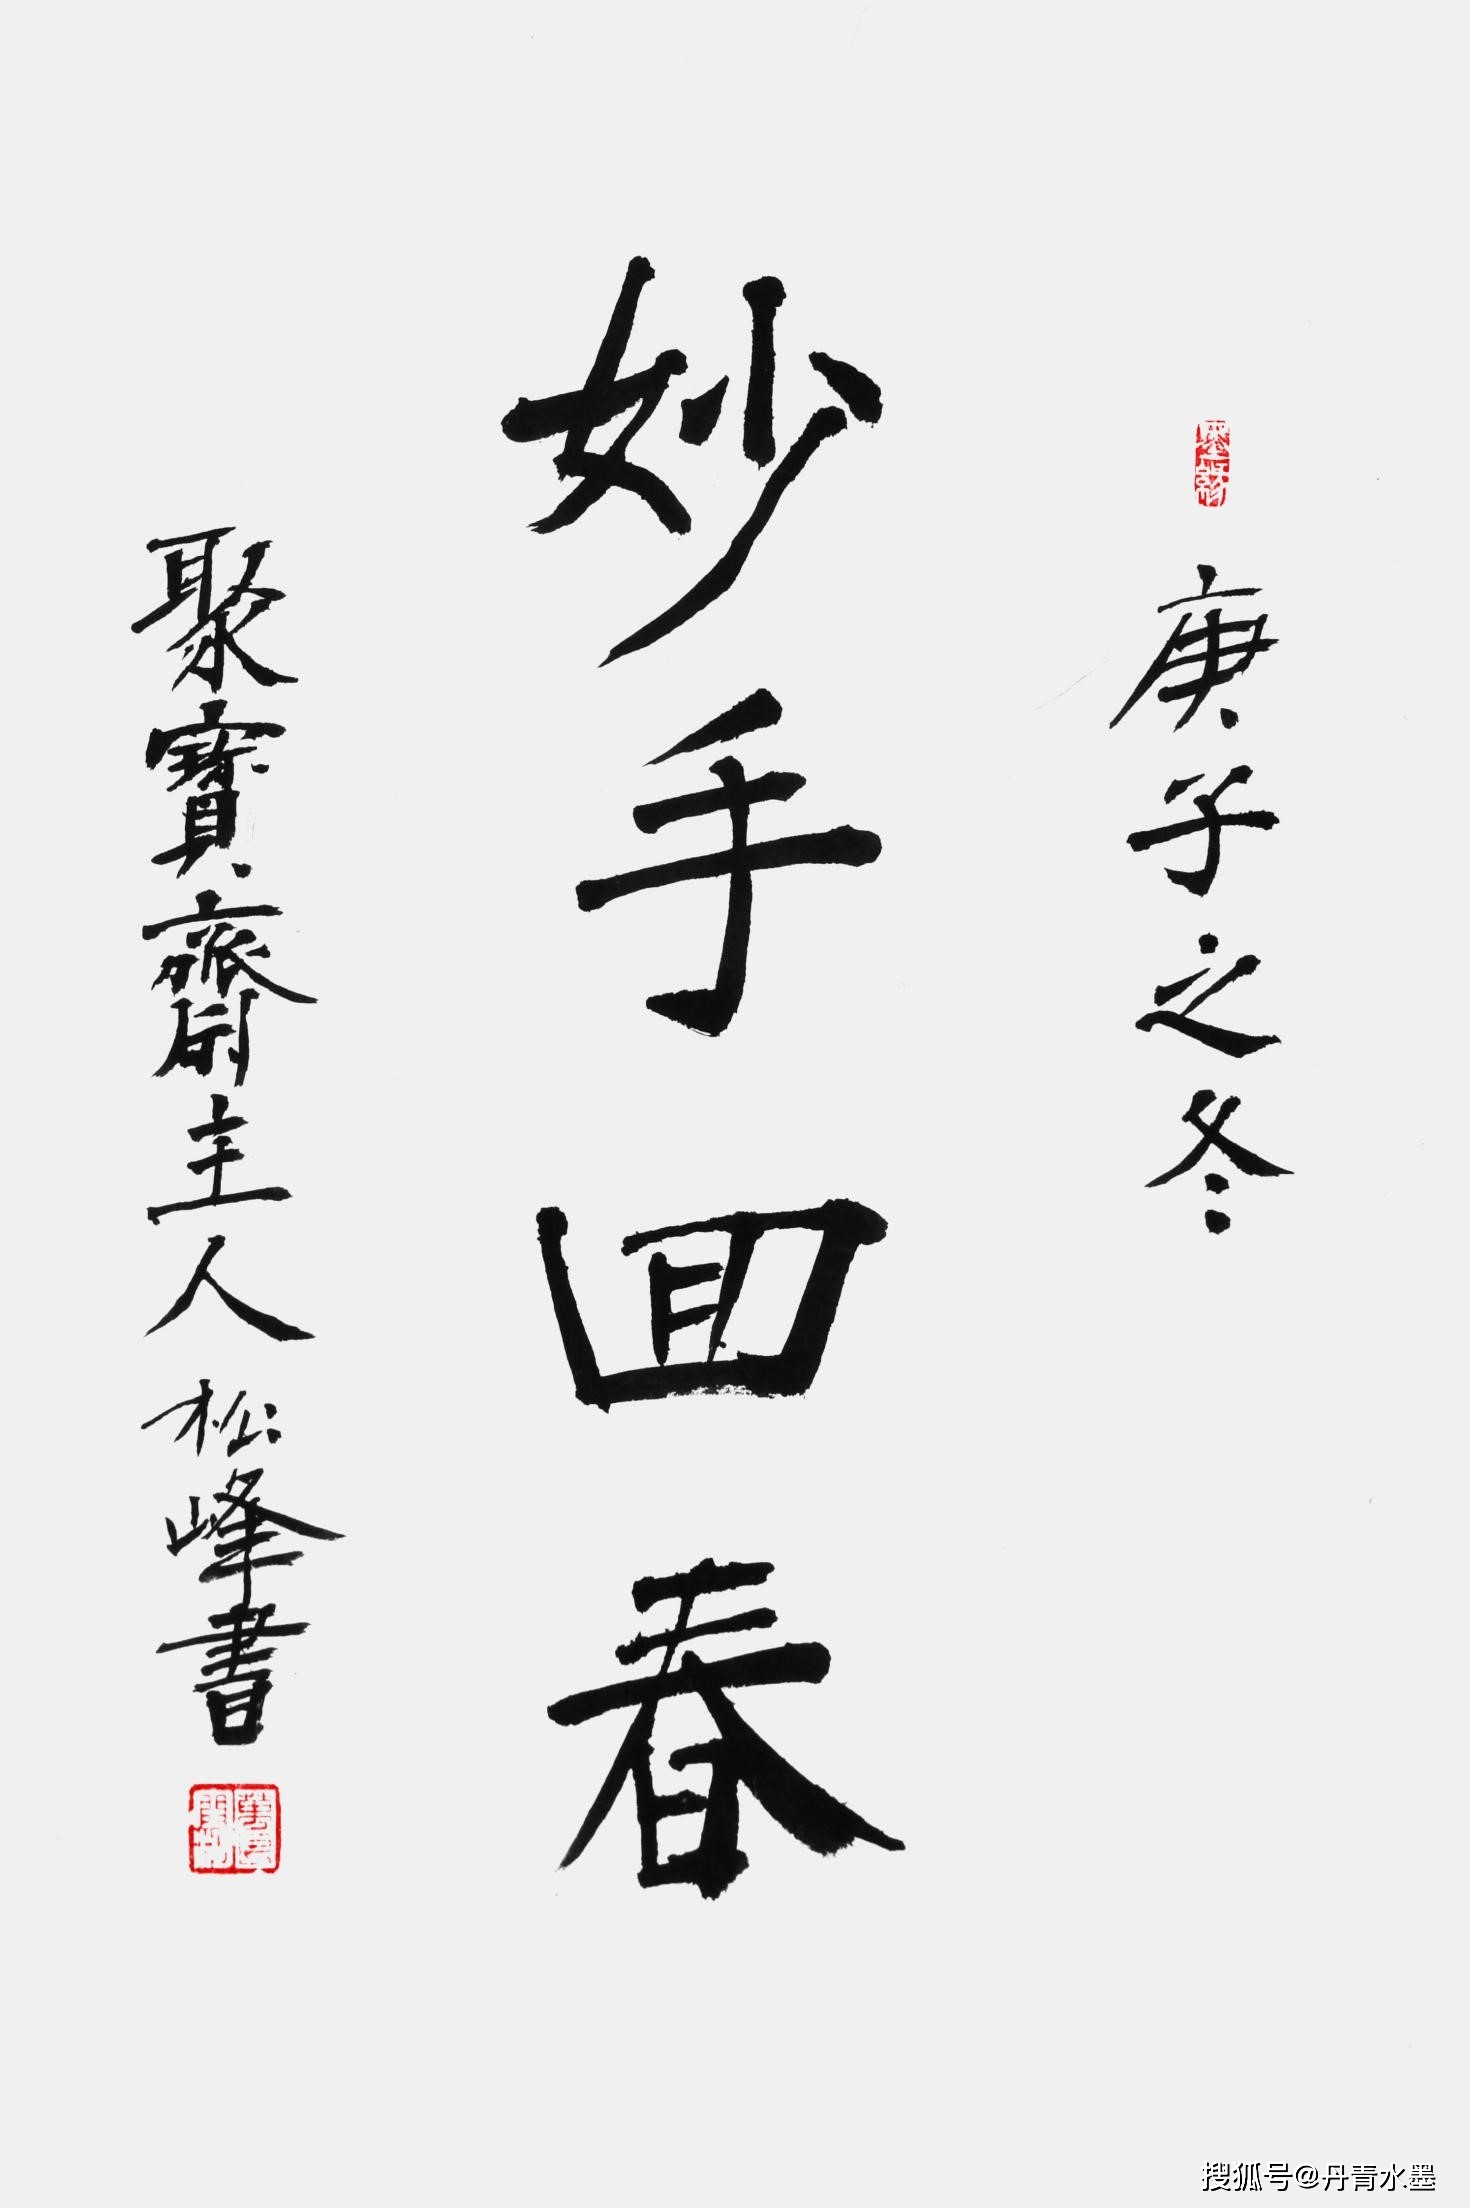 庚子之冬
妙手回春
聚寶齋主人松峰書
搜狐号@丹青水墨